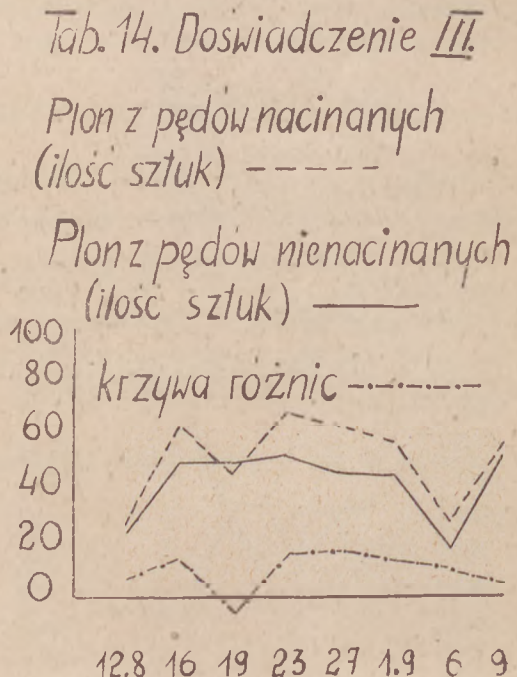 Tab. 14. Doświadczenie III.
Plon z pędów nacinanych
(ilość sztuk) - - - - -
Plon z pędów nienacinanych
(ilość sztuk) ———
100
80
krzywa rożnic -·-·-·-
60
40
20
0
12.8 16 19 23 27 1.9 6 9